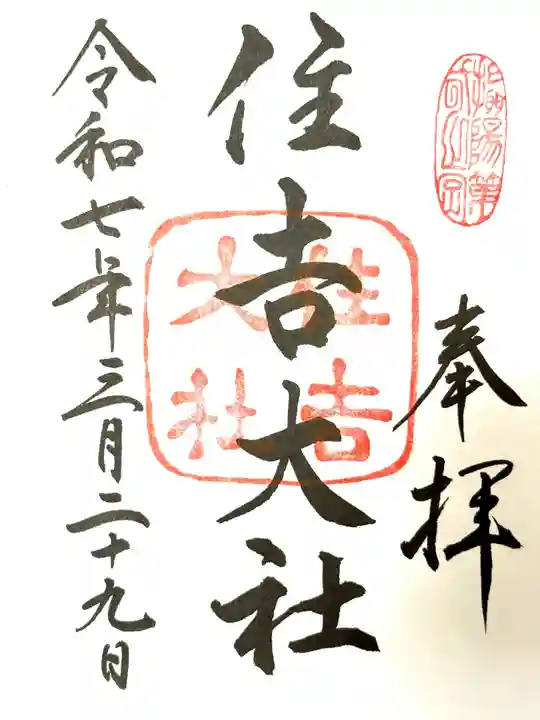 奉拝
住吉大社
住吉
大社
令和七年三月二十九日